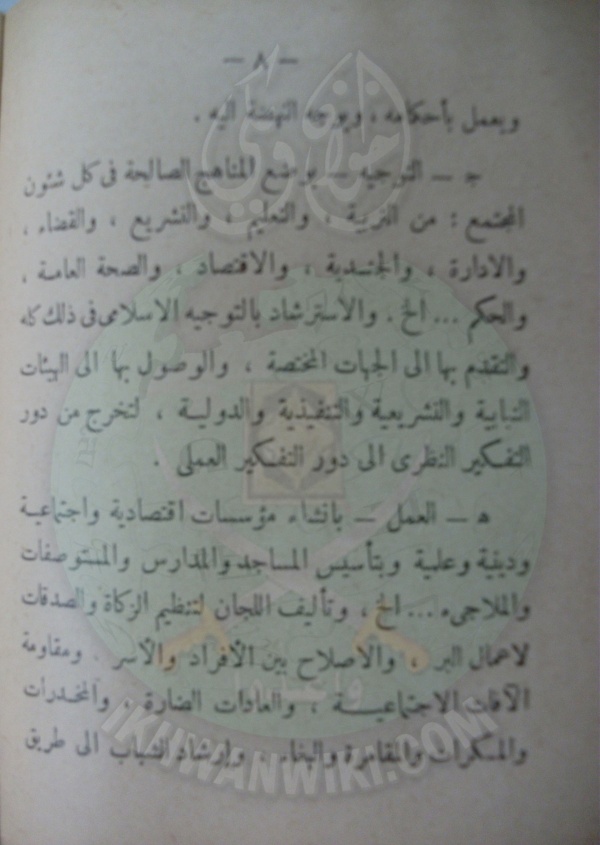 — ٨ —
ويعمل بأحكامه ، ويوجه النهضة اليه .
ج — التوجيه — بوضع المناهج الصالحة فى كل شئون
المجتمع : من التربية ، والتعليم ، والتشريع ، والقضاء ،
والادارة ، والجندية ، والاقتصاد ، والصحة العامة ،
والحكم ... الخ . والاسترشاد بالتوجيه الاسلامى فى ذلك كله
والتقدم بها الى الجهات المختصة ، والوصول بها الى الهيئات
النيابية والتشريعية والتنفيذية والدولية ، لتخرج من دور
التفكير النظرى الى دور التفكير العملى .
ه — العمل — بانشاء مؤسسات اقتصادية واجتماعية
ودينية وعلمية وبتأسيس المساجد والمدارس والمستوصفات
والملاجىء ... الخ ، وتأليف اللجان لتنظيم الزكاة والصدقات
لاعمال البر ، والاصلاح بين الأفراد والأسر . ومقاومة
الآفات الاجتماعيـــة ، والعادات الضارة ، والمخدرات
والمسكرات والمقامرة والبغاء . وإرشاد الشباب الى طريق
وأعدوا
IKHWANWIKI.COM